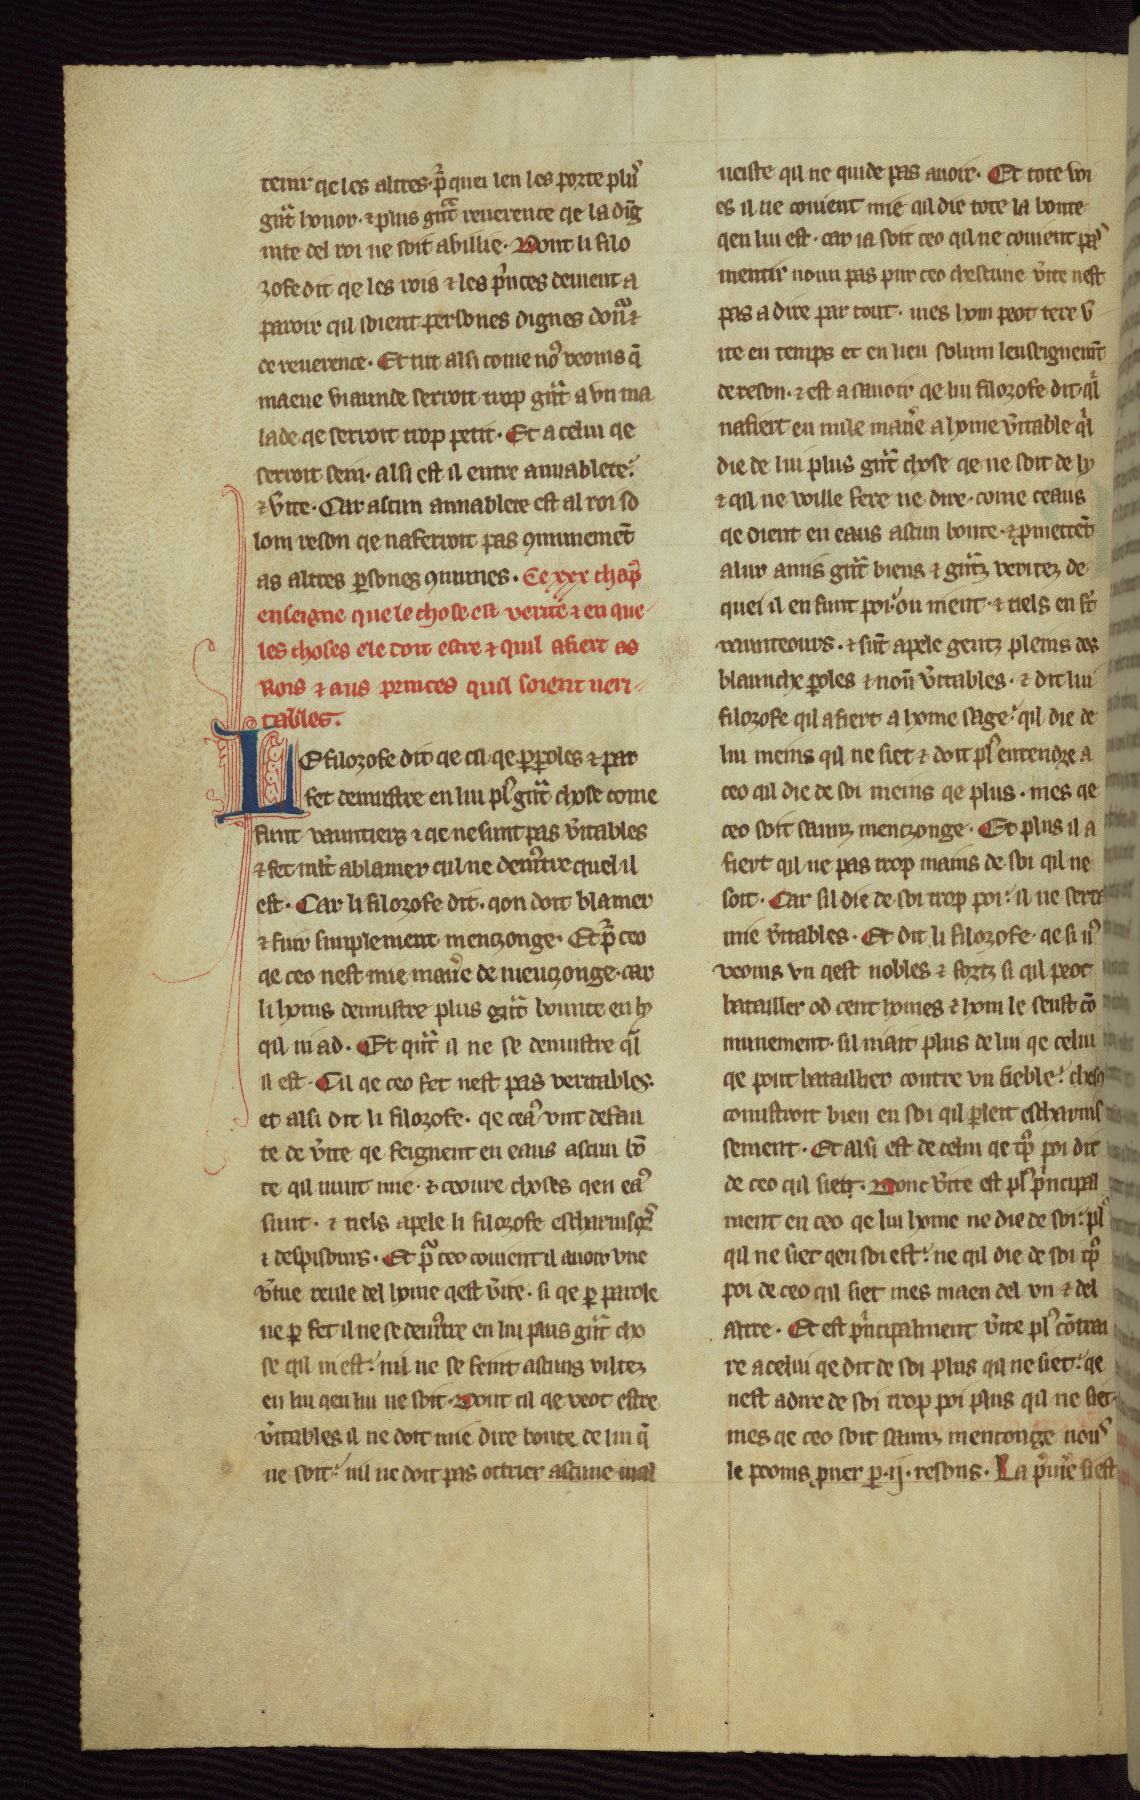 tenir qe les altres· p̃ quei len les porte plus
gñt honor· ⁊ plus gñt reuerence qe la dig̃
nite del roi ne soit abillie· Dont li filo
zofe dit qe les rois ⁊ les p̃nces deuient a
paroir qil soient persones dignes donᷓ ⁊
de reuerence· Et tut alsi come no᷒ veoms q̃
maene viaunde serroit trop gñt a vn ma
lade qe serroit trop petit· Et a celui qe
serroit sein· alsi est il entre amiablete·
⁊ v̾ite· Car ascun amiablete est al roi so
lom reson qe naferroit pas ꝯmunemẽt
as altres ꝑsones ꝯmunes· Ce xxx chap̃
enseigne que le chose est verite ⁊ en que
les choses ele doit estre ⁊ quil afiert as
Rois ⁊ aus princes quil soient veri
tables·
LE filozofe dit qe cil qe ꝑ ꝑoles ⁊ par
fet demustre en lui pl᷒ gñt chose come
sunt vauntierz ⁊ qe ne sunt pas v̾itables
⁊ fet mlt̃ a blamer cil ne demᷤtre quel il
est· Car li filozofe dit· qon doit blamer
⁊ fuir simplement menzonge· Et p̃ ceo
qe ceo nest mie man̾e de menzonge· car
li homs demustre plus gñt bounte en ly
qil ni ad· Et qñt il ne se demustre q̃l
il est· Cil qe ceo fet nest pas veritables·
et alsi dit li filozofe· qe cea᷒ vnt defau
te de v̾ite qe feignent en eaus ascun bõ
te qil niunt mie· ⁊ ceoure choses qen ea᷒
sunt· ⁊ tiels apele li filozofe escharniso᷒s
⁊ despisours· Et pᷓ ceo couient il auoir vne
v̾tue reule del home qest v̾ite· si qe ꝑ parole
ne ꝑ fet il ne se demᷤtre en lui plus gñt cho
se qil ni est· nil ne se feint ascuns viltez
en lui qen lui ne soit· Dont cil qe veot estre
v̾itables il ne doit mie dire bonte de lui q̃
ne soit· nil ne doit pas ottrier ascune mal
ueiste qil ne quide pas auoir· Et tote voi
es il ne couient mie qil die tote la bonte
qen lui est· car ia soit ceo qil ne couient pa᷒
mentir noun pas pur ceo chescune v̾ite nest
pas a dire par tout· mes hom peot tere v̾
ite en temps et en lieu solum lenseignemẽt
de reson· ⁊ est a sauoir qe lui filozofe dit· q̃l
nafiert en nule man̾e a home v̾itable q̃l
die de lui plus gñt chose qe ne soit de ly
⁊ qil ne wille fere ne dire· come ceaus
qe dient en eaus ascun bonte· ⁊ ꝓmettẽt
a lur amis gñt biens ⁊ gñtz veritez de
quei il en funt poi· ou nient· ⁊ tiels en sũt
vaunteours· ⁊ sũt apele gentz pleins des
blaunche ꝑoles ⁊ noũ v̾itables· ⁊ dit lui
filozofe qil afiert a home sage· qil die de
lui meins qil ne siet ⁊ doit pl᷒ entendre a
ceo qil die de soi meins qe plus· mes qe
ceo soit saunz menzonge· Et plus il a
fiert qil ne pas trop mains de soi qil ne
soit· Car sil die de soi trop poi· il ne serra
mie v̾itables· Et dit li filozofe· qe si n᷒
veoms vn qest nobles ⁊ fortz si qil peot
batailler od cent homes ⁊ hom le seust cõ
munement· sil niait plus de lui qe celui
qe pout bataillier contre vn fieble· chesc̃
conustroit bien en soi qil ꝑleit escharnis
sement· Et alsi est de celui qe tp̃ poi dit
de ceo qil siet· Donc v̾ite est pl᷒ p̃ncipal
ment en ceo qe lui home ne die de soi· pl᷒
qil ne siet qen soi est· ne qil die de soi tp̃
poi de ceo qil siet mes maen del vn ⁊ del
altre· Et est p̃ncipalment v̾ite pl᷒ cõtrai
re a celui qe dit de soi plus qil ne siet· qe
nest a dire de soi trop poi plus qil ne siet·
mes qe ceo soit saunz menconge nou᷒
le pooms ꝓuer ꝑ ·ij· resons· La p̃mie̾ si est